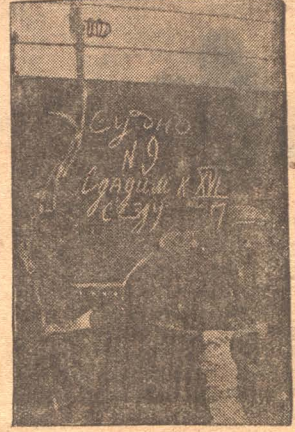 Судно
N 9
Сдадим к XVI
съезду П